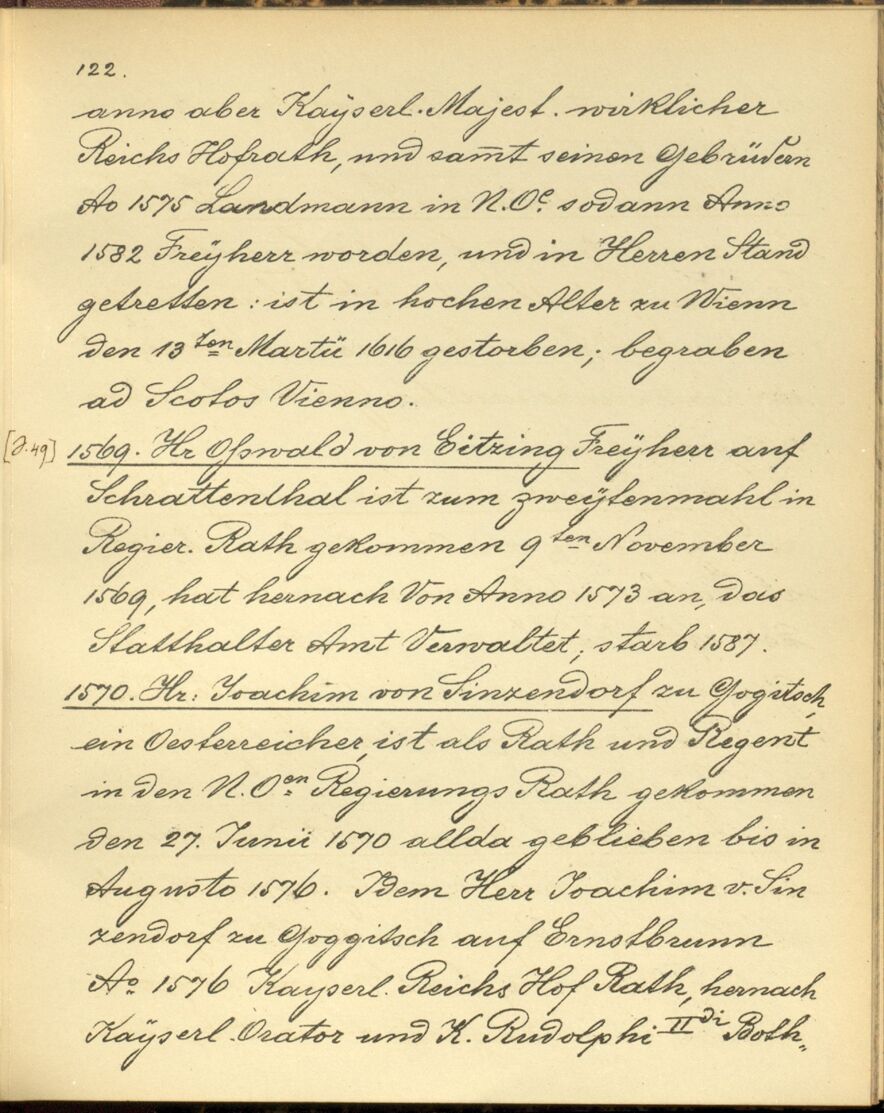 122.
anno aber Kaÿserl. Majest. wirklicher
Reichs Hofrath, und sam̅t seinen Gebrüdern
Ao 1575 Landmann in N. Oe. sodann Anno
1582 Freÿherr worden, und in Herren Stand
getretten : ist in hochen Alter zu Wienn
den 13ten Martii 1616 gestorben ; begraben
ad Scotos Vienno.
[J. 49] 1569. Hr Oßwald von Eitzing Freÿherr auf
Schrattenthal ist zum zweÿtenmahl in
Regier. Rath gekommen 9ten November
1569, hat hernach Von Anno 1573 an, das
Statthalter Amt Verwaltet ; starb 1587.
1570. Hr: Joachim von Sinzendorf zu Gogitsch,
ein Oesterreicher, ist als Rath und Regent
in den N. Oen Regierungs Rath gekommen
den 27. Junii 1570 allda geblieben bis in
Augusto 1576. Idem Herr Joachim v. Sin
zendorf zu Goggitsch auf Ernstbrunn
Ao 1576 Kayserl. Reichs Hof Rath, hernach
Kaÿserl. Orator und K. Rudolphi IIdi Both„